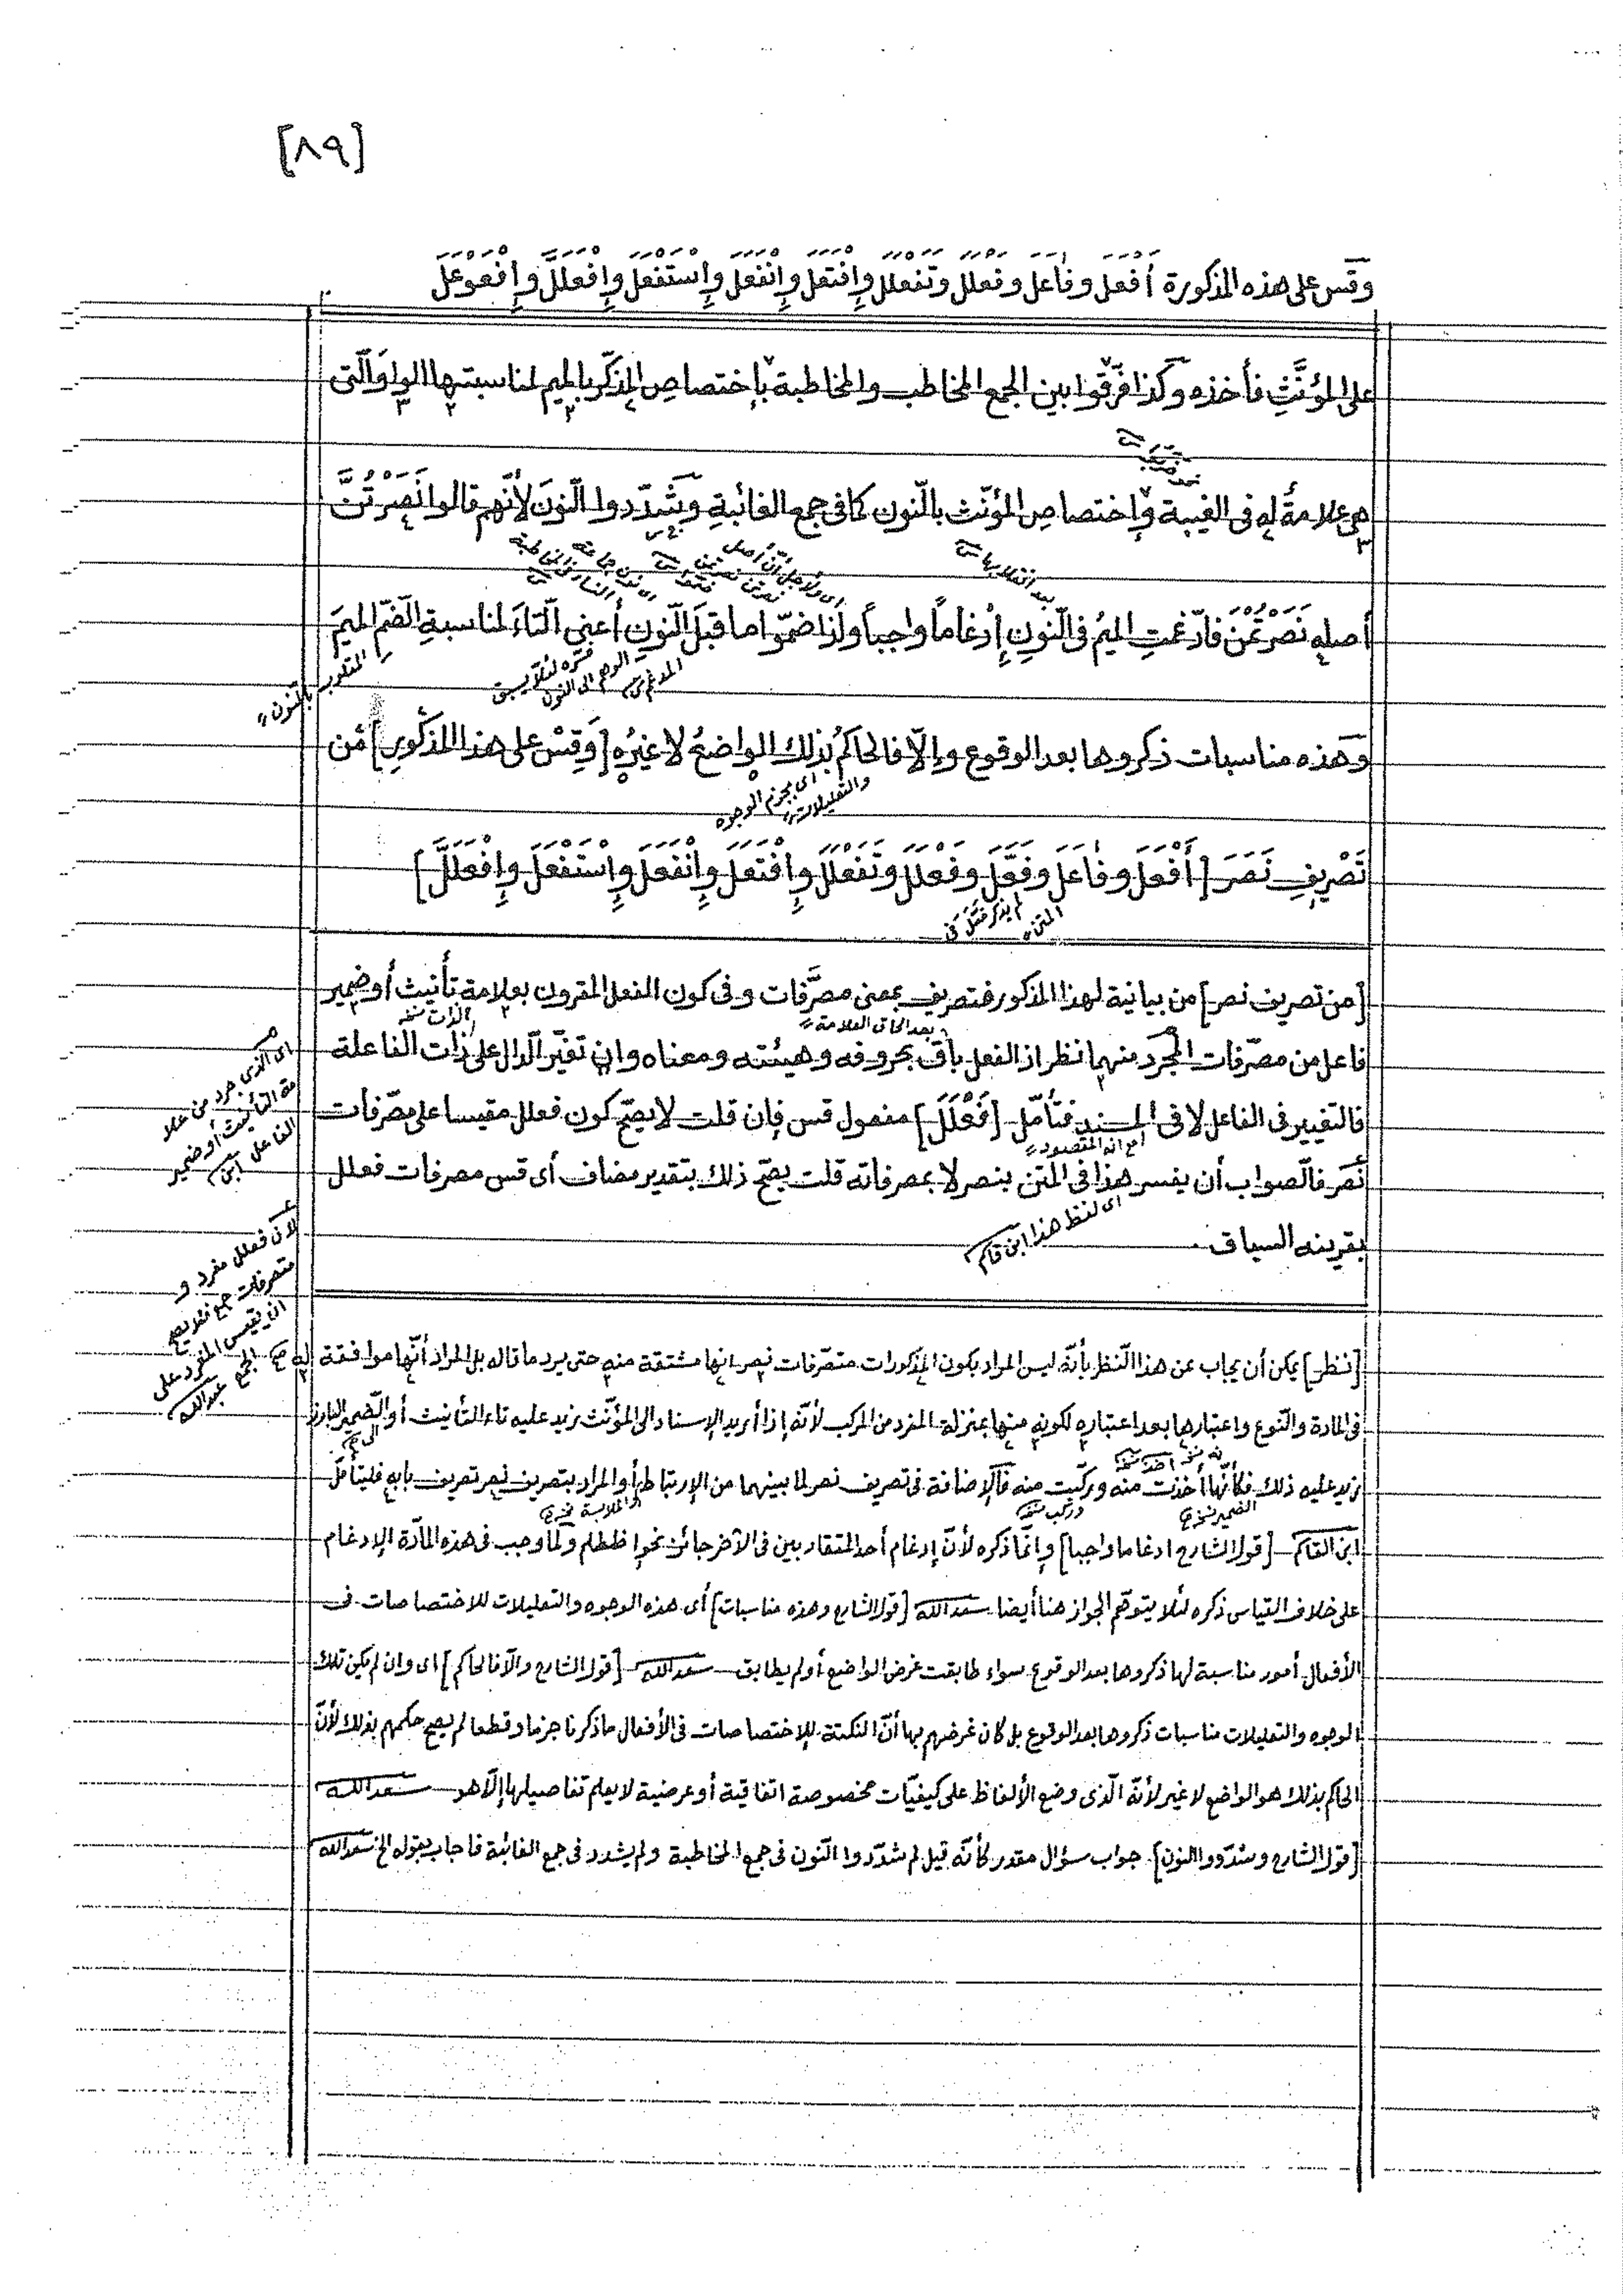 [٨٩]
وقس على هذه المذكورة أَفْعَلَ وفَاعَلَ وفَعْلَلَ وتَفَعْلَلَ وإِفْتَعَلَ وإِنْفَعَلَ وإِسْتَفْعَلَ وإِفْعَلَلَّ وإِفْعَوْعَلَ
على المؤنَّثِ فأخذه وكذا فرّقوا بين الجمع المخاطب والمخاطبة بإختصاص المذكّر بالميم لمناسبتها الواوَ الّتى
هى علامةُ له فى الغيبة وإختصاص المؤنّث بالنّون كما فى جمع الغائبةِ وشَدّدوا النّونَ لأنّهم قالوا نَصَرْتُنَّ
أصله نَصَرْتُمْنَ فادّغمتِ الميمُ فى النّونِ إدغاماً واجباً ولذا ضمّوا ما قبلَ النّونِ أعنى التاءَ لمناسبةِ الضّمِّ الميمَ
المقلوب بالنون
المدغم
فسّره لئلا يسبق
الوهم الى النون
وهذه مناسبات ذكروها بعد الوقوع وإلّا فالحاكمُ بذلك الواضعُ لا غيرُه [وَقِسْ على هذا المذكورِ] من
اى بجزم الوجوه
والتعليلات
تَصْرِيفِ نَصَرَ [أَفْعَلَ وفَاعَلَ وفَعَّلَ وفَعْلَلَ وتَفَعْلَلَ وإِفْتَعَلَ وإِنْفَعَلَ وإِسْتَفْعَلَ وإِفْعَلَلَّ]
لم يذكر فعّل فى
المتن
[من تصريف نصر] من بيانية لهذا المذكور فتصريف بمعنى مصرَّفات وفى كون الفعل المقرون بعلامة تأنيث أو ضمير
بعد الحاق العلامة
فاعل من مصرّفات المجرد منهما نظر اذ الفعل باق بحروفه وهيئته ومعناه وان تغيّر الدّال على ذات الفاعلة
اى الذى جرد من علا
مة التأنيث أو ضمير
الفاعل
فالتغيير فى الفاعل لا فى المسند فتأمّل [فَعْلَلَ] مفعول قس فإن قلت لا يصحّ كون فعلل مقيسا على مصرّفات
مع انه المقصود
نَصَرَ فالصواب أن يفسر هذا فى المتن بنصر لا بمصرفاته قلت يصحّ ذلك بتقدير مضاف أى قس مصرفات فعلل
اى لفظ هذا ابن قاسم
بقرينه السياق
لان فعلل مفرد و
متصرفات جمع فلا يصح
ان يقيس المفرد على
الجمع عبدالله
[نظر] يمكن أن يجاب عن هذا النّظر بأنّه ليس المراد بكون المذكورات متصّرفات نصر انها مشتقة منه حتى يرد ما قاله بل المراد أنّها موافقة له
فى المادة والنّوع واعتبارها بعد اعتباره لكونه منها بمنزلة المفرد من المركب لأنّه إذا أريد الإسناد الى المؤنّث زيد عليه تاء التأنيث أو الضمير البارز
زيد عليه ذلك فكأنّها أخذت منه وركّبت منه فالإضافة فى تصريف نصر لما بينهما من الإرتباط أو المراد بتصريف نصر تصريف بابه فليتأمّل
ابن القاسم [قول الشارح ادغاما واجبا] وإنّما ذكره لأنّ إدغام أحد المتقاربين فى الآخر جائز نحو اظطلم ولمّا وجب فى هذه المادّة الإدغام
على خلاف القياس ذكره لئلا يتوهّم الجواز هنا أيضا سعدالله [قول الشارح وهذه مناسبات] أى هذه الوجوه والتعليلات للاختصاصات فى
الأفعال أمور مناسبة لها ذكروها بعد الوقوع سواء طابقت غرض الواضع أو لم يطابق سعدالله [قول الشارح والّا فالحاكم] اى وان لم يكن تلك
الوجوه والتعليلات مناسبات ذكروها بعد الوقوع بل كان غرضهم بها أنّ النكتة للاختصاصات فى الأفعال ما ذكرنا جزما وقطعا لم يصح حكمهم بذلك لأنّ
الحاكم بذلك هو الواضع لا غير لأنّه الّذى وضع الألفاظ على كيفيّات مخصوصة اتفاقية أو عرضية لا يعلم تفاصيلها إلّا هو سعدالله
[قول الشارح وشدّدوا النون] جواب سؤال مقدر كأنّه قيل لم شدّدوا النّون فى جمع المخاطبة ولم يشدد فى جمع الغائبة فاجاب بقوله الخ سعدالله